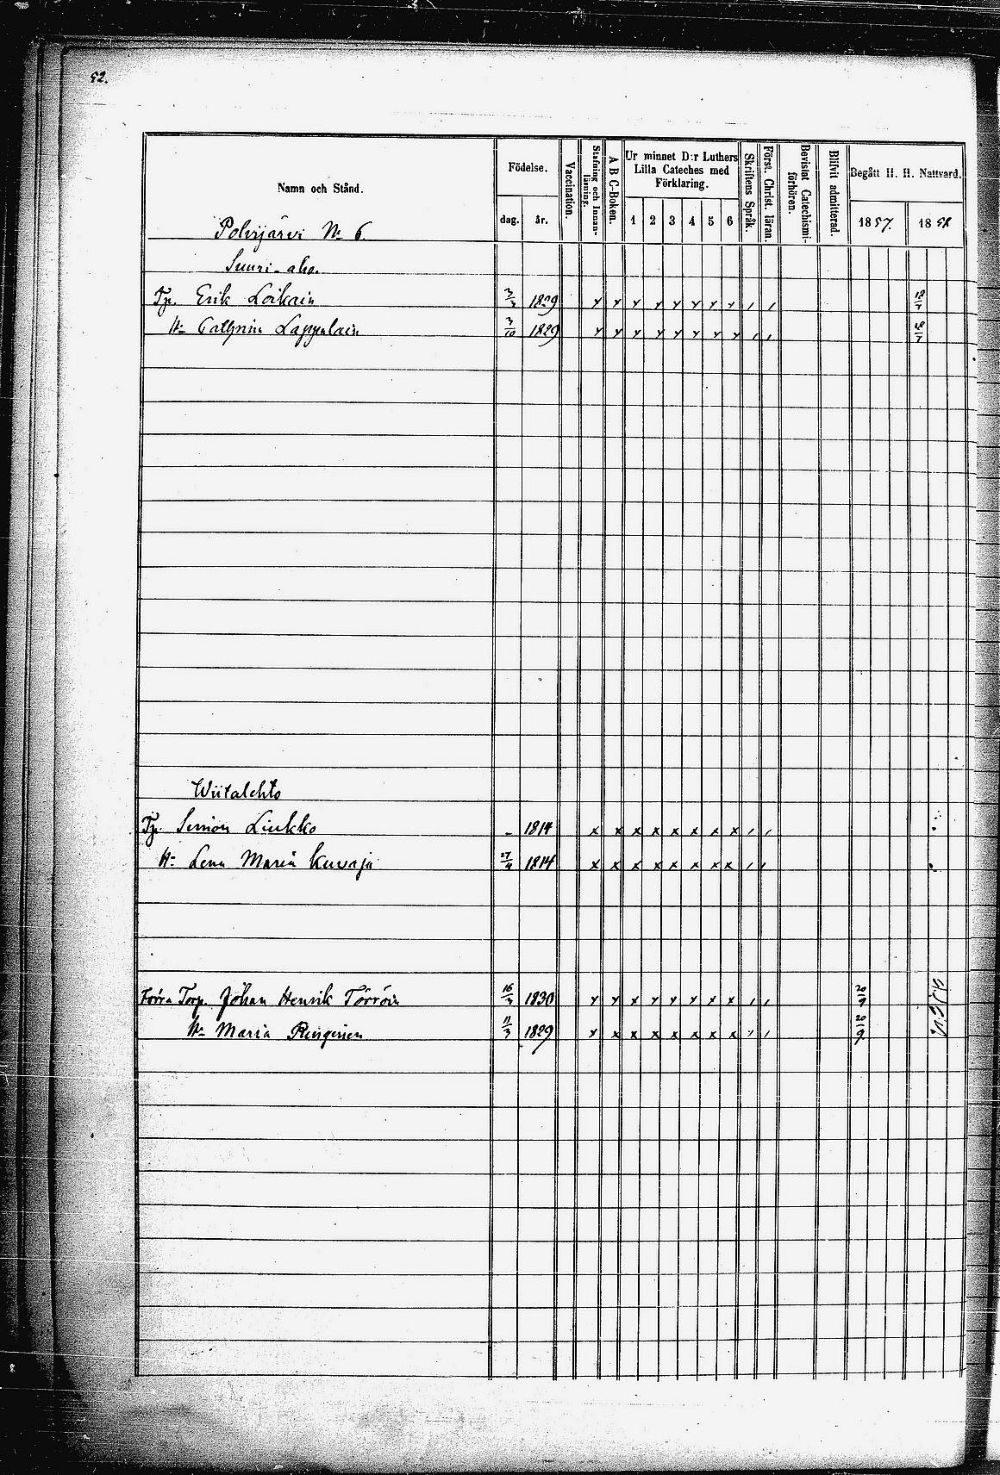 52.
Namn och Stånd. Födelse. dag. år. Vaccination. Stafning och Innanläsning. A B C-Boken. Ur minnet D:r Luthers Lilla Cateches med Förklaring. 1 2 3 4 5 6 Skriftens Språk. Först. Christ. läran. Bevisint Catechismiförhören. Blifvit admitterad. Begått H. H. Nattvard. 1857. 1858
Polvijärvi No 6.
Suuri-aho.
Tp. Erik Loikain 1829 x x x x x x x x , ,
H: Cathrin Lappalain 3/10 1829 x x x x x x x x , ,
Wiitalehto
Tp. Simon Liukko - 1814 x x x x x x x x , ,
H: Lena Maria Kuvaja 27/4 1814 x x x x x x x x , ,
Förra Torp. Johan Henrik Törröin 16/3 1830 x x x x x x x x , , 20/9
H: Maria Renginen 11/3 1829 x x x x x x x x , , 20/9